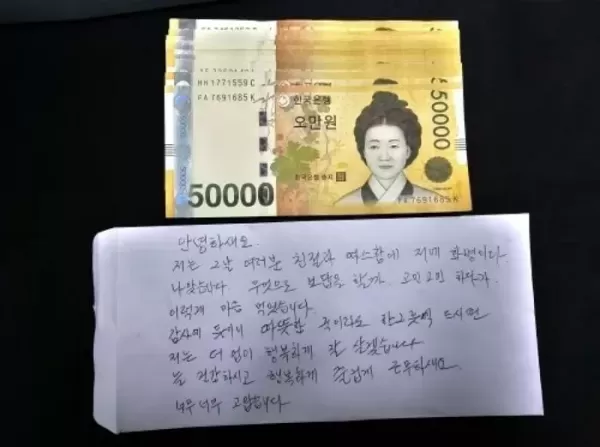 HH1771559C
FA7691685K
한국은행
오만원
50000
한국은행 총재
50000
FA7691685K
안녕하세요
저는 그날 여러분 친절과 따스함에 저의 화병이다
나았습니다. 무엇으로 보답을 할까 고민고민 하다가
이렇게 마음 먹었습니다.
감사의 뜻에서 따뜻한 국이라도 한그릇씩 드시면
저는 더 없이 행복하게 잘 살겠습니다
늘 건강하시고 행복하게 즐겁게 근무하세요
너무너무 고맙습니다